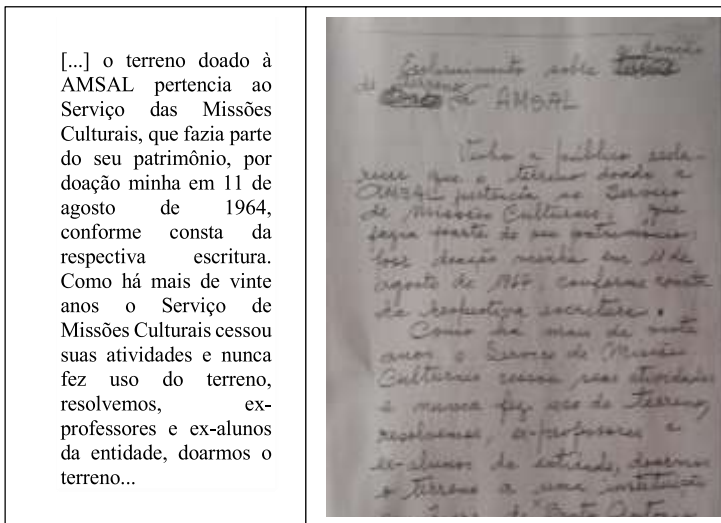 [...] o terreno doado à
AMSAL pertencia ao
Serviço das Missões
Culturais, que fazia parte
do seu patrimônio, por
doação minha em 11 de
agosto de 1964,
conforme consta da
respectiva escritura.
Como há mais de vinte
anos o Serviço de
Missões Culturais cessou
suas atividades e nunca
fez uso do terreno,
resolvemos, ex-
professores e ex-alunos
da entidade, doarmos o
terreno...
Esclarecimento sobre a doação
de terreno à AMSAL
Venho a público escla-
recer que o terreno doado a
AMSAL pertencia ao Serviço
de Missões Culturais, que
fazia parte do seu patrimônio,
por doação minha em 11 de
agosto de 1964, conforme consta
da respectiva escritura.
Como há mais de vinte
anos o Serviço de Missões
Culturais cessou suas atividades
e nunca fez uso do terreno,
resolvemos, ex-professores e
ex-alunos da entidade, doarmos
o terreno a uma instituição